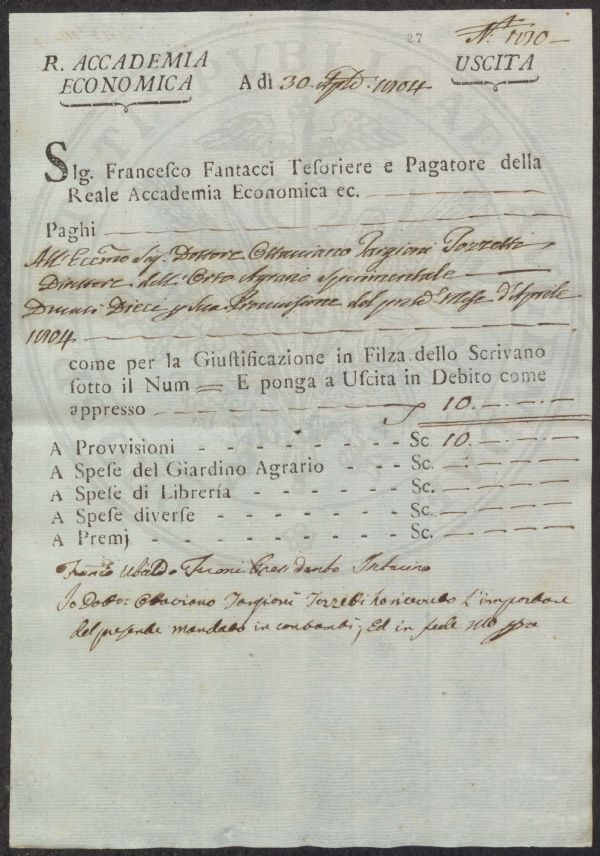 27
N.º 1010
R. ACCADEMIA
ECONOMICA
A dì 30. Aple: 1804
USCITA
SIg. Francesco Fantacci Tesoriere e Pagatore della
Reale Accademia Economica ec.
Paghi
All' Eccmo Sig. Dottore Ottaviano Targioni Tozzetti
Direttore dell' Orto Agrario Sperimentale
Ducati Dieci p Sua Provvisione del Mese d'Aprile
1804
come per la Giustificazione in Filza dello Scrivano
sotto il Num E ponga a Uscita in Debito come
appresso 10.
A Provvisioni - - - - - - - - Sc 10.
A Spese del Giardino Agrario - - - - Sc.
A Spese di Librería - - - - - - Sc.
A Spese diverse - - - - - - - Sc.
A Premj - - - - - - - - - Sc.
Ubaldo Feroni Presidente Interino
Io Dottr: Ottaviano Targioni Tozzetti ho ricevuto l'importare
del presente mandato in contanti; Ed in fede Mo ppa